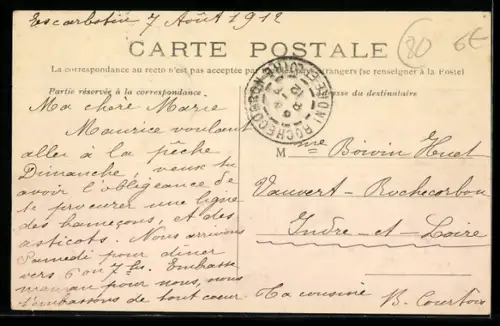 Escarbotin 7 Août 1912
80
6€
CARTE POSTALE
La correspondance au recto n'est pas acceptée par étrangers (se renseigner à la Poste)
Partie réservée à la correspondance.
Adresse du destinataire
ROCHECORBON
Ma chère Marie
Maurice voulant
aller à la pêche
Dimanche, veux tu
avoir l'obligeance de
te procurer une ligne
des hameçons, et des
asticots. Nous arrivons
Samedi pour diner
vers 6 ou 7 hs. Embrasse
maman pour nous, nous
t'embrassons de tout coeur.
Ta cousine
B. Courtois
Mme Boivin Huet
Vauvert-Rochecorbon
Indre-et-Loire